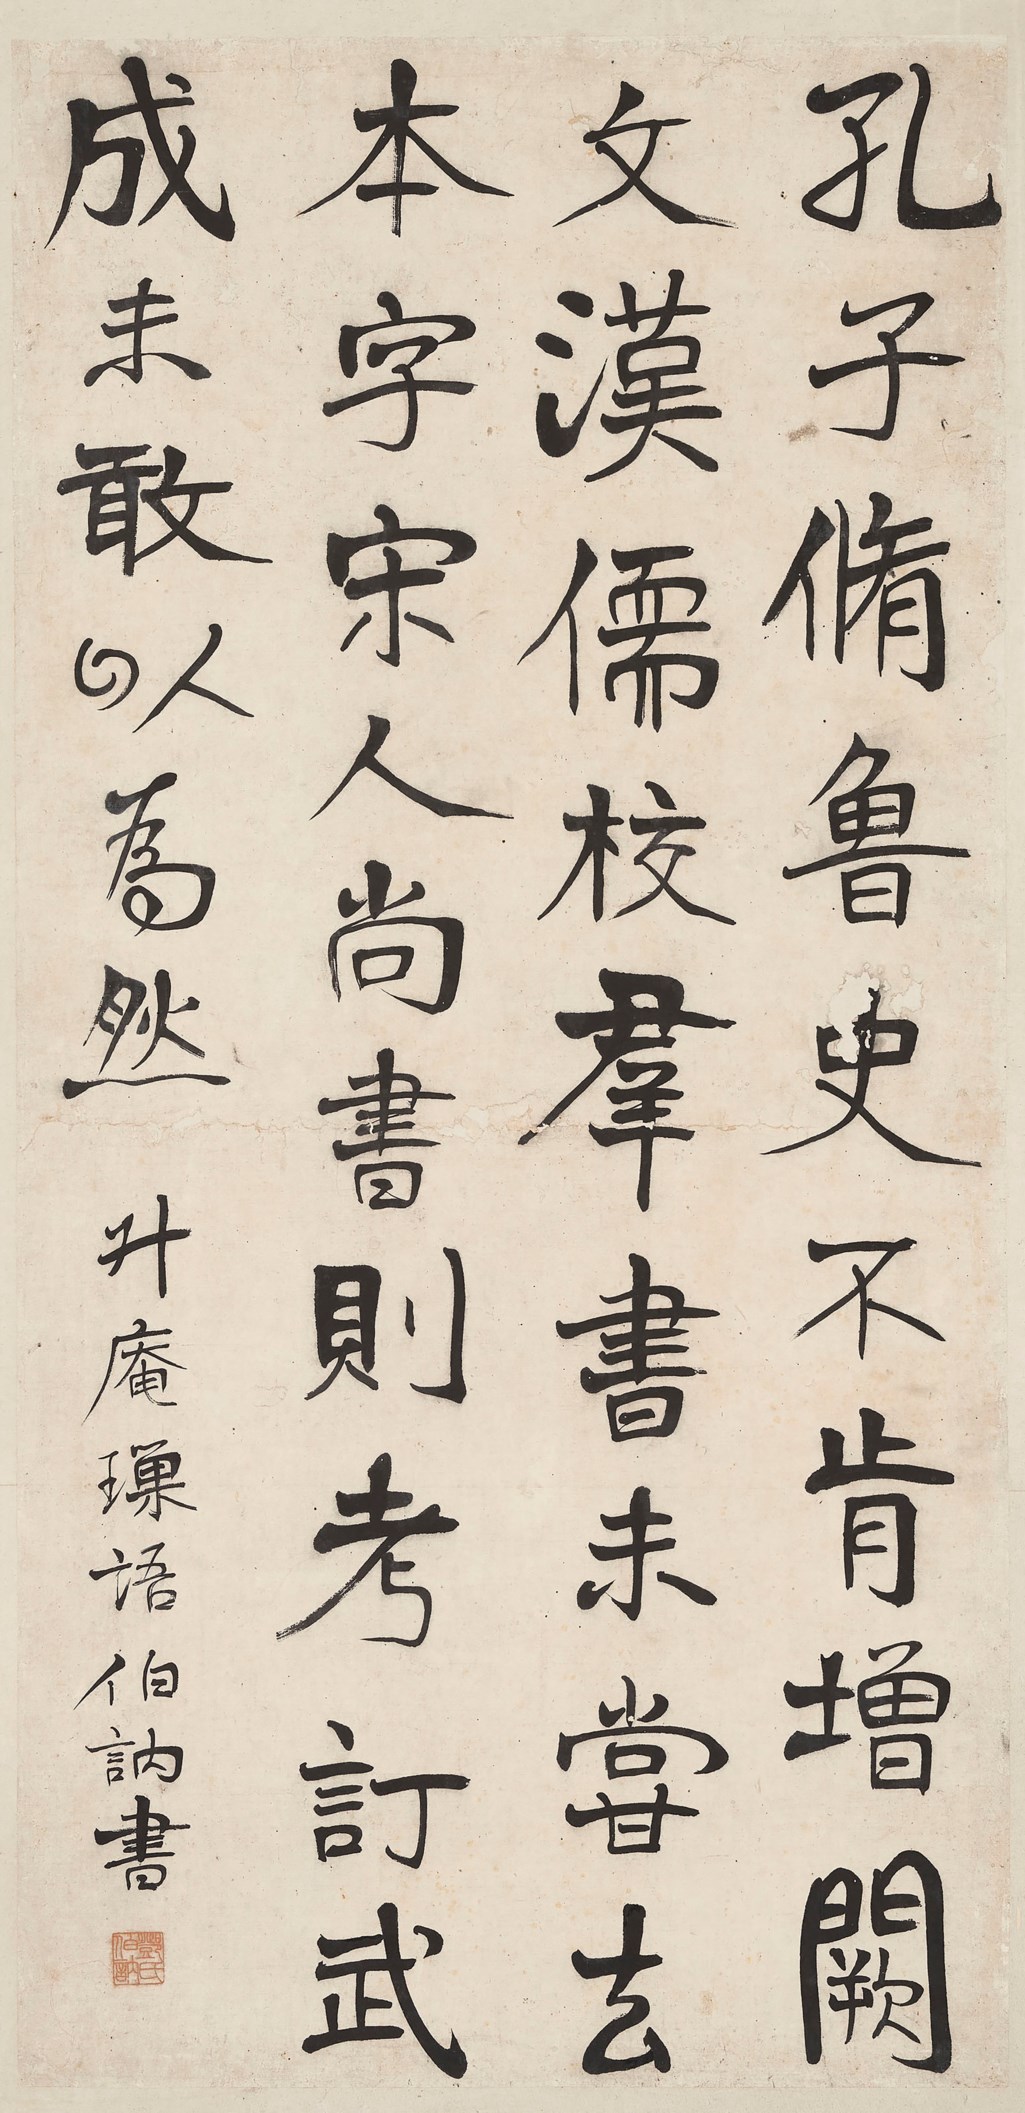 孔子脩魯史不肯增闕
文漢儒校羣書未嘗去
本字宋人尚書則考訂武
成未敢以為然
升庵璅語伯訥書
鄧氏伯訥